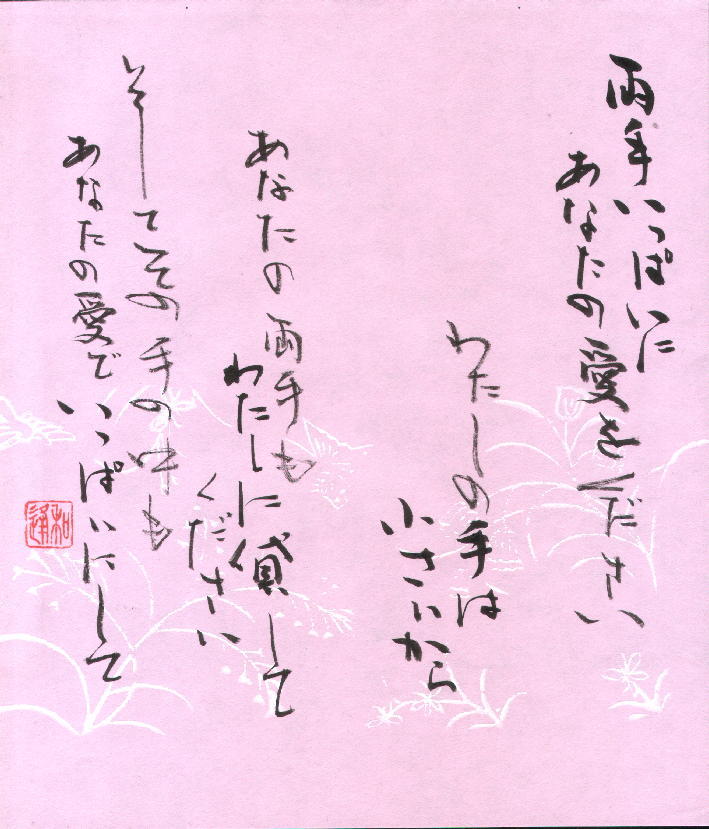 両手いっぱいに
あなたの愛をください
わたしの手は
小さいから
あなたの両手も
わたしに貸して
ください
そしてその手の中も
あなたの愛で
いっぱいにして